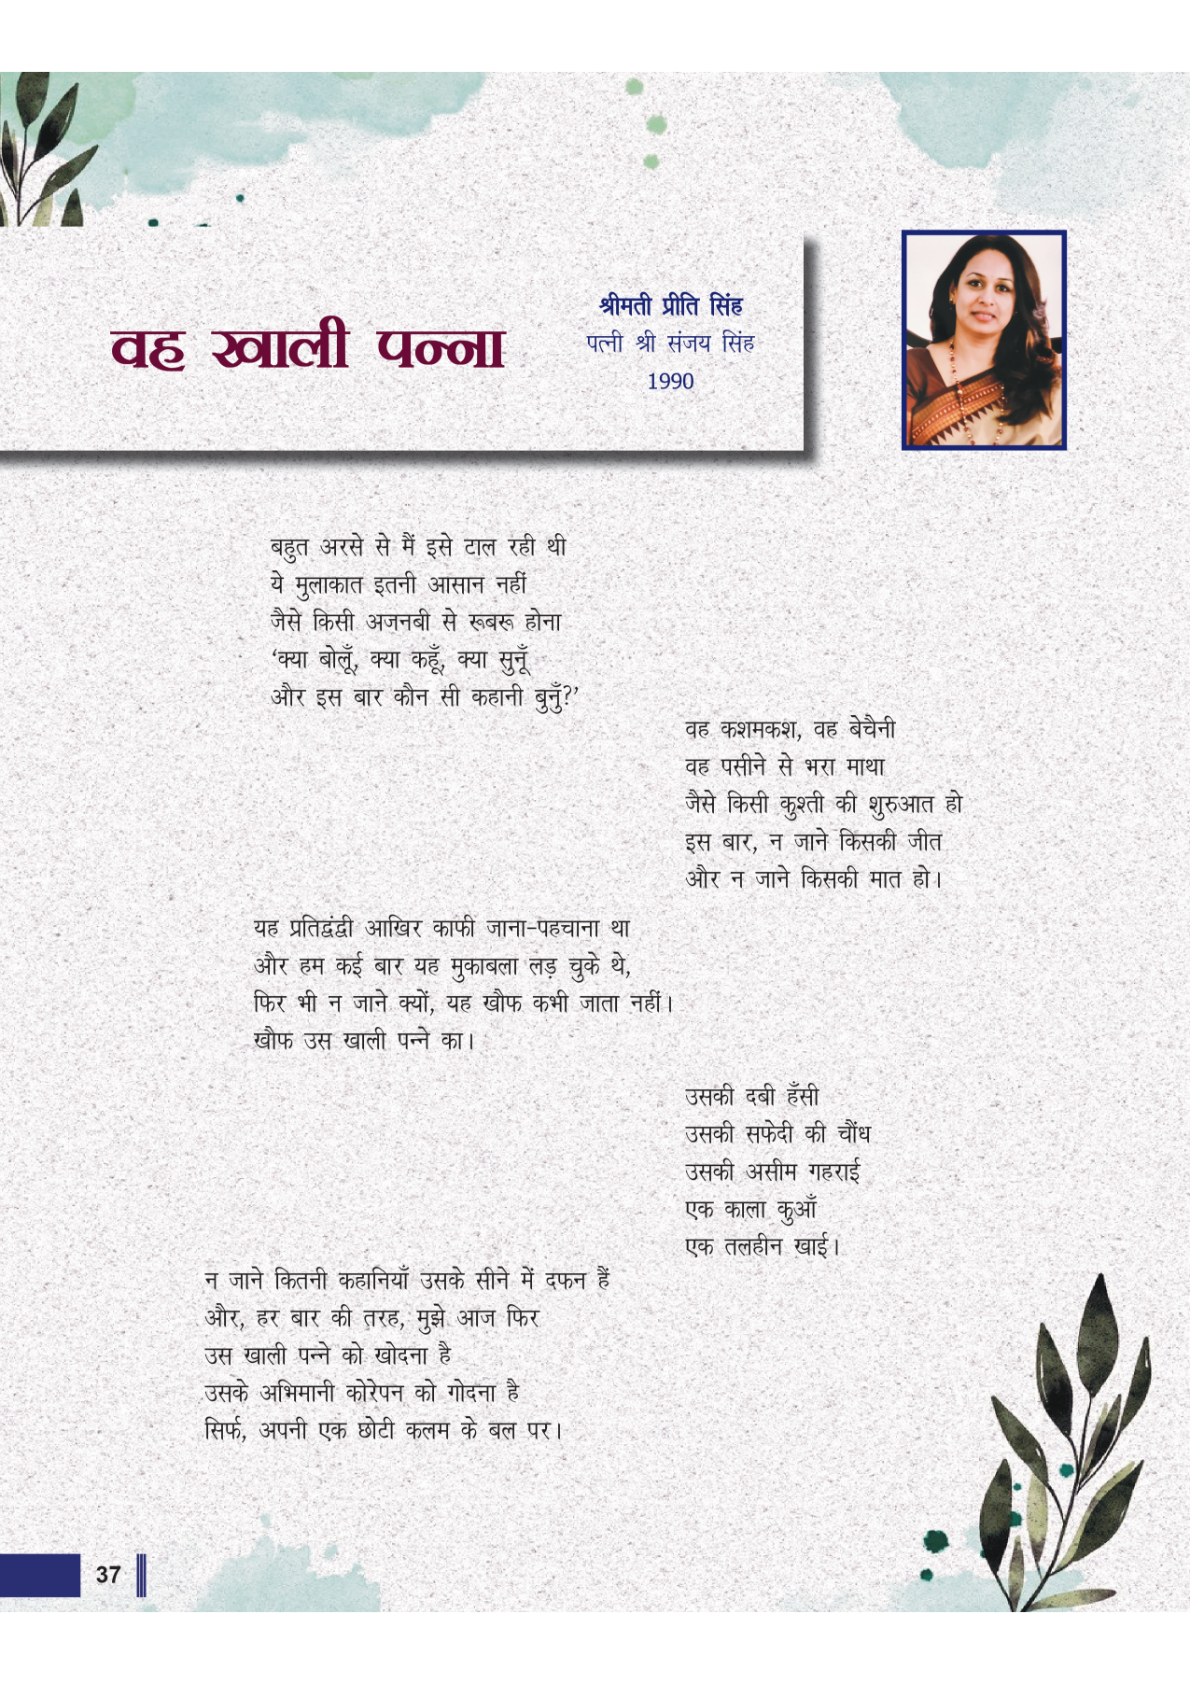 वह खाली पन्ना
श्रीमती प्रीति सिंह
पत्नी श्री संजय सिंह
1990
बहुत अरसे से मैं इसे टाल रही थी
ये मुलाकात इतनी आसान नहीं
जैसे किसी अजनबी से रूबरू होना
‘क्या बोलूँ, क्या कहूँ, क्या सुनूँ
और इस बार कौन सी कहानी बुनुँ?’
वह कशमकश, वह बेचैनी
वह पसीने से भरा माथा
जैसे किसी कुश्ती की शुरुआत हो
इस बार, न जाने किसकी जीत
और न जाने किसकी मात हो।
यह प्रतिद्वंद्वी आखिर काफी जाना-पहचाना था
और हम कई बार यह मुकाबला लड़ चुके थे,
फिर भी न जाने क्यों, यह खौफ कभी जाता नहीं।
खौफ उस खाली पन्ने का।
उसकी दबी हँसी
उसकी सफेदी की चौंध
उसकी असीम गहराई
एक काला कुआँ
एक तलहीन खाई।
न जाने कितनी कहानियाँ उसके सीने में दफन हैं
और, हर बार की तरह, मुझे आज फिर
उस खाली पन्ने को खोदना है
उसके अभिमानी कोरेपन को गोदना है
सिर्फ, अपनी एक छोटी कलम के बल पर।
37